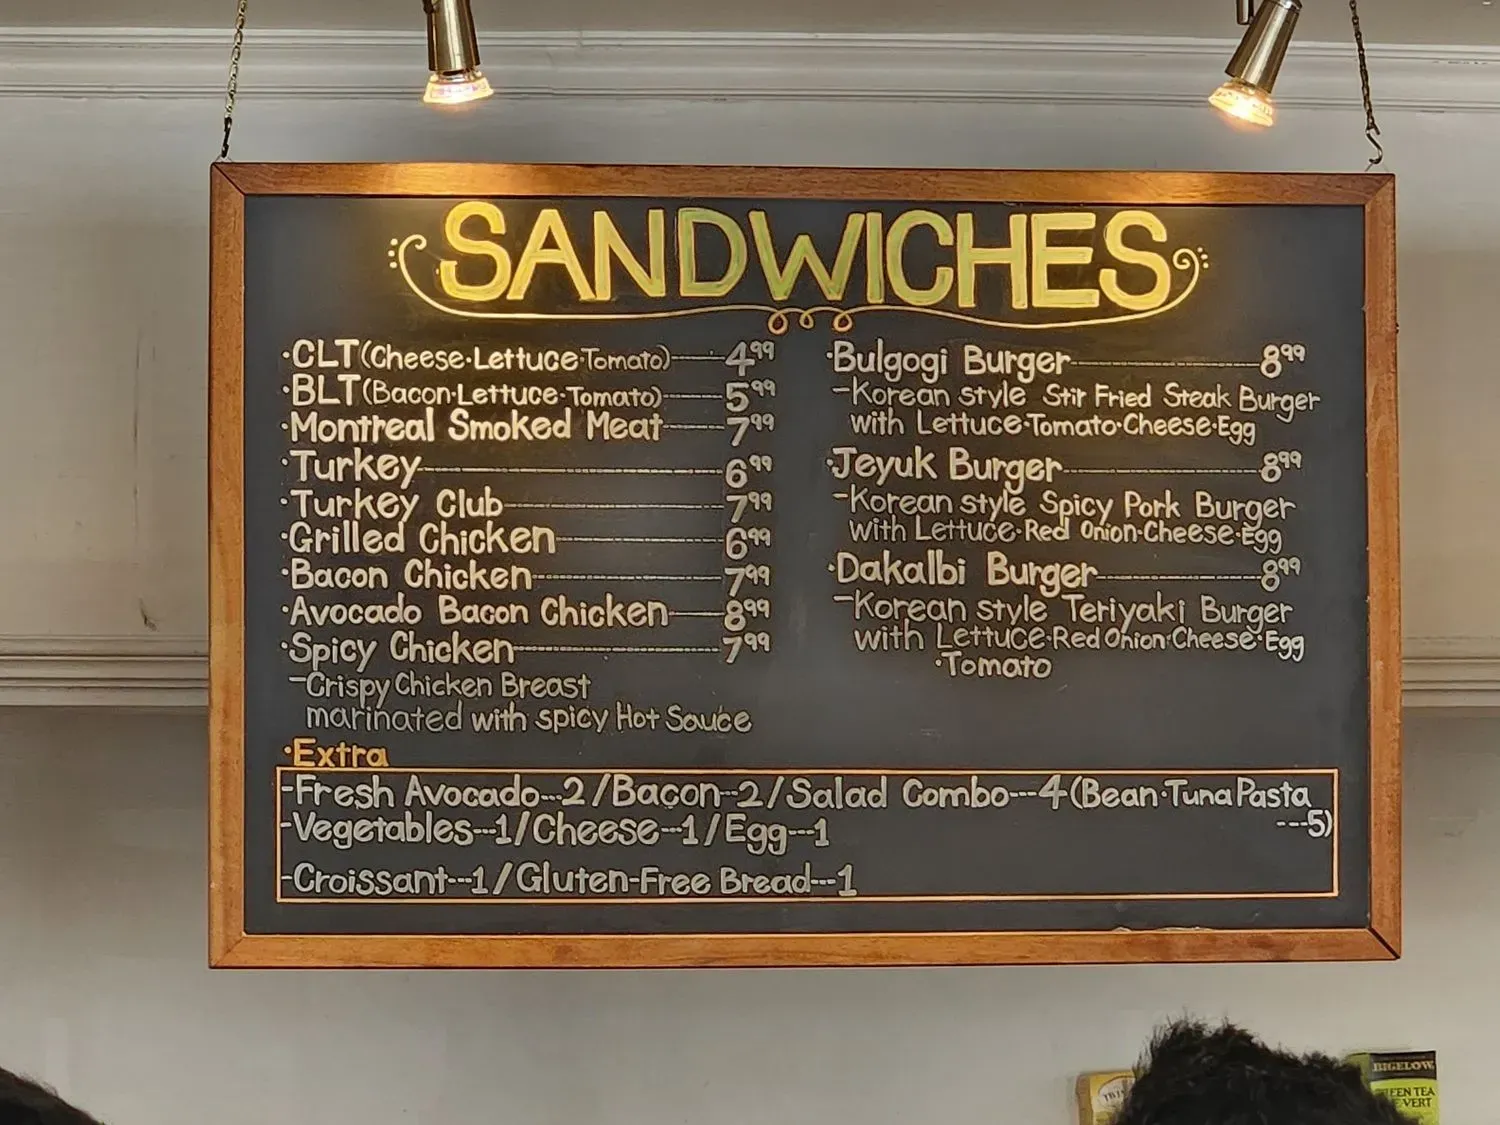 SANDWICHES
·CLT(Cheese·Lettuce·Tomato)----4⁹⁹
·BLT(Bacon·Lettuce·Tomato)----5⁹⁹
·Montreal Smoked Meat----7⁹⁹
·Turkey----6⁹⁹
·Turkey Club----7⁹⁹
·Grilled Chicken----6⁹⁹
·Bacon Chicken----7⁹⁹
·Avocado Bacon Chicken----8⁹⁹
·Spicy Chicken----7⁹⁹
-Crispy Chicken Breast
marinated with spicy Hot Sauce
·Bulgogi Burger----8⁹⁹
-Korean style Stir Fried Steak Burger
with Lettuce·Tomato·Cheese·Egg
·Jeyuk Burger----8⁹⁹
-Korean style Spicy Pork Burger
with Lettuce·Red Onion·Cheese·Egg
·Dakalbi Burger----8⁹⁹
-Korean style Teriyaki Burger
with Lettuce·Red Onion·Cheese·Egg
·Tomato
·Extra
-Fresh Avocado---2/Bacon---2/Salad Combo---4(Bean·Tuna Pasta
---5)
-Vegetables---1/Cheese---1/Egg---1
-Croissant---1/Gluten-Free Bread---1
BIGELOW
GREEN TEA
VERT